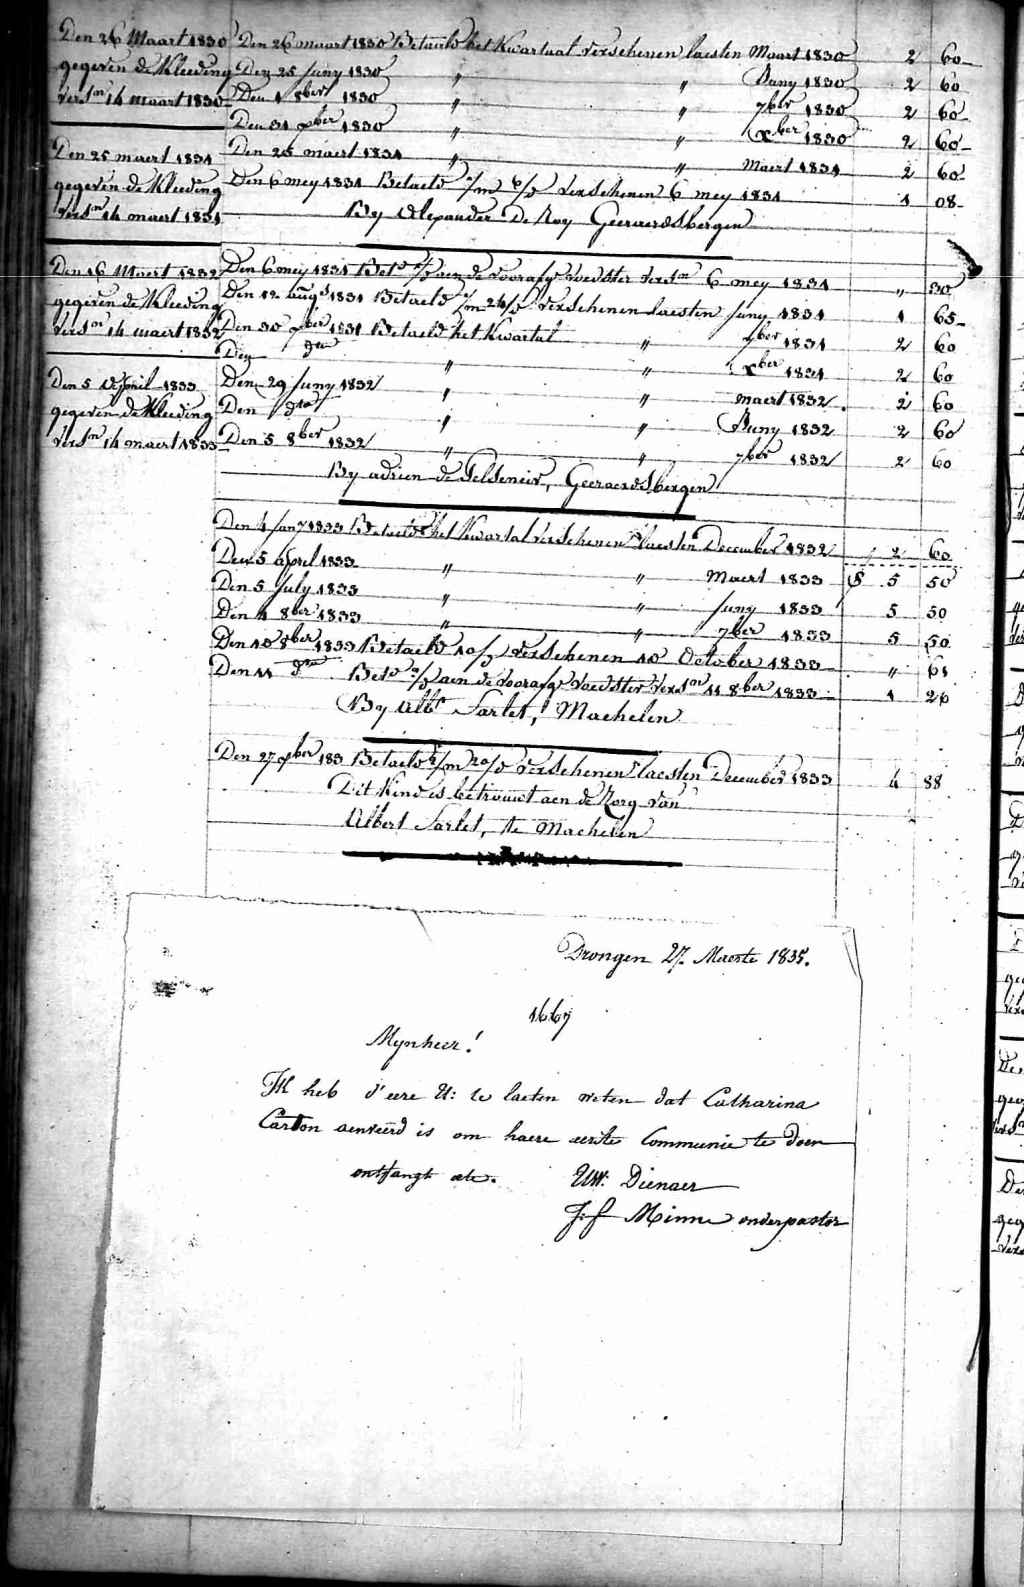 Den 26 Maart 1830
gegeven de Kleeding
versn 14 maart 1830
Den 25 maert 1831
gegeven de Kleeding
versn 14 maert 1831
Den 16 Maert 1832
gegeven de Kleeding
versn 14 maert 1832
Den 5 April 1833
gegeven de Kleeding
versn 14 maert 1833
Den 26 maart 1830 Betaeld het Kwartaal verschenen laesten Maart 1830 2 60
Den 25 Juny 1830 " " Juny 1830 2 60
Den 1 8ber 1830 " " 7ber 1830 2 60
Den 31 xber 1830 " " xber 1830 2 60
Den 25 maert 1831 " " Maert 1831 2 60
Den 6 mey 1831 Betaeld verschenen 6 mey 1831 1 08
By Alexander De Roy Geeraerdsbergen
Den 6 mey 1831 Betd aen de voorafge voedster versn 6 mey 1831 " 30
Den 12 Augt 1831 Betaeld verschenen laesten Juny 1831 1 65
Den 30 1831 Betaeld het Kwartal " 7ber 1831 2 60
Den dto " " xber 1831 2 60
Den 29 Juny 1832 " " maert 1832 2 60
Den dto " " Juny 1832 2 60
Den 5 8ber 1832 " " 7ber 1832 2 60
By adrien de Geeraerdsbergen
Den 4 Jany 1833 Betaeld het Kwartal verschenen laesten December 1832 2 60
Den 5 april 1833 " " Maert 1833 5 50
Den 5 July 1833 " " Juny 1833 5 50
Den 4 8ber 1833 " " 7ber 1833 5 50
Den 10 8ber 1833 Betaeld 10/d verschenen 10 October 1833 " 61
Den 11 dto Betd aen de voorafge voedster versn 11 8ber 1833 1 26
By Albt Sarlet, Machelen
Den 27 xber 183 Betaeld verschenen laesten December 1833 4 88
Dit Kind is betrouwt aen de Zorg van
Albert Sarlet, te Machelen
Drongen 27. Maerte 1835.
1667
Mynheer!
Ik heb d'eere U: te laeten weten dat Catharina
Carton aenveerd is om haere eerste Communie te doen
ontfangt etc. UW: Dienaer
J: f Minne onderpastor